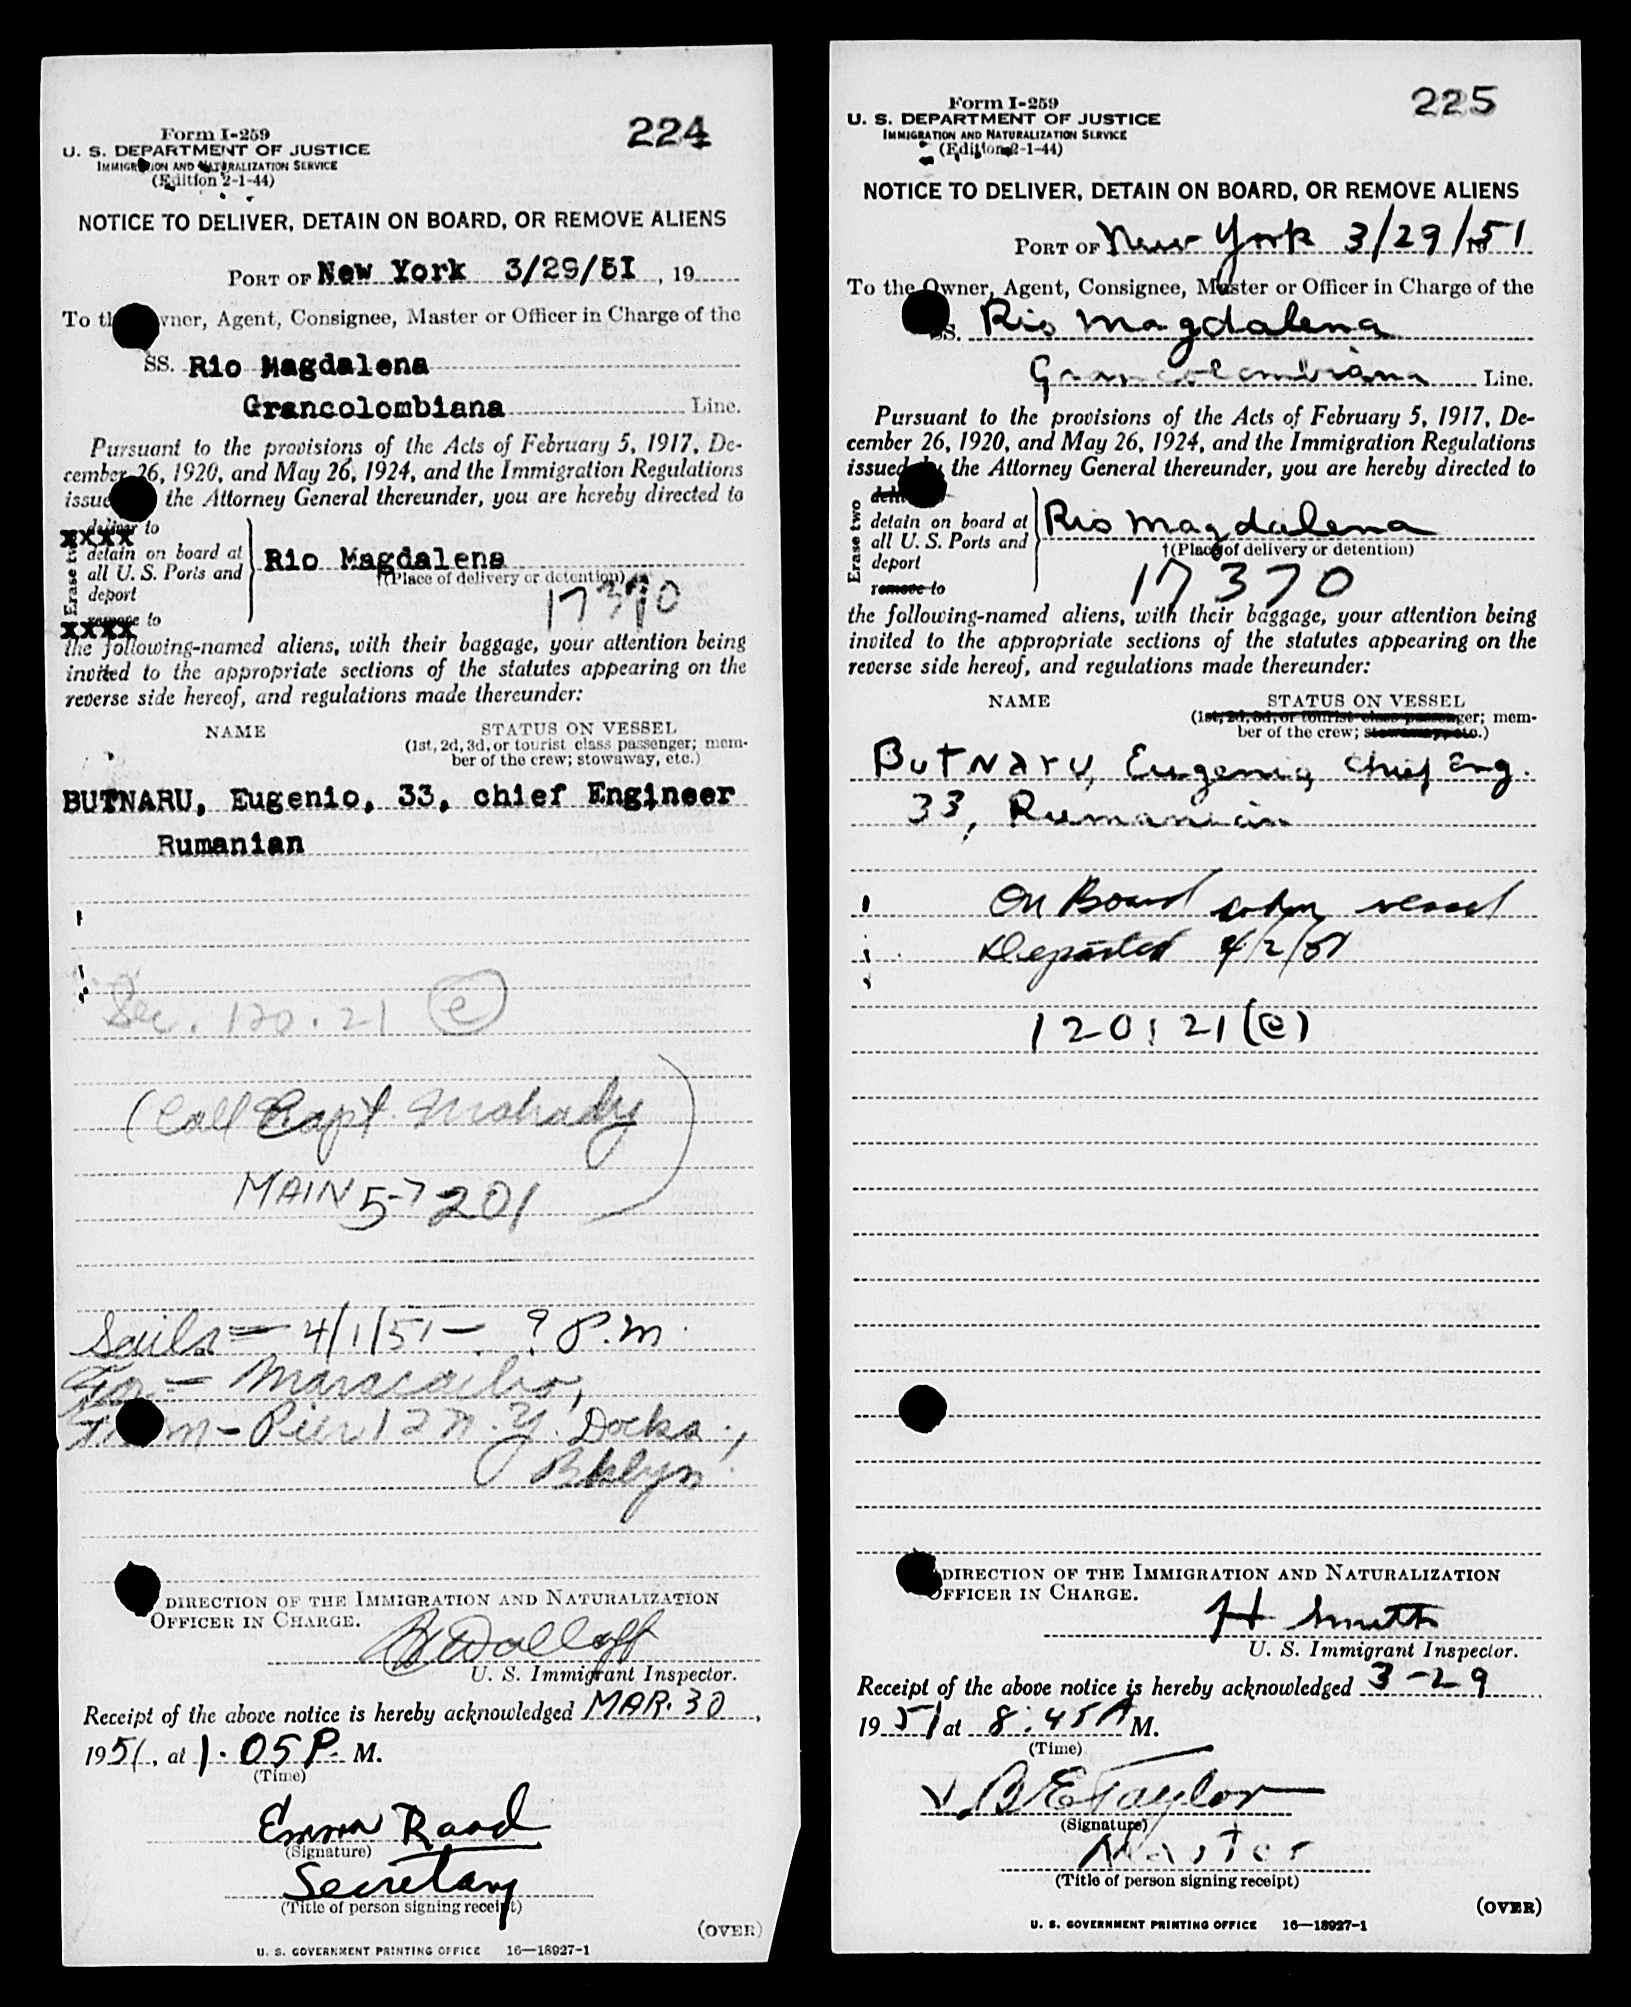 224
Form I-259
U. S. DEPARTMENT OF JUSTICE
IMMIGRATION AND NATURALIZATION SERVICE
(Edition 2-1-44)
NOTICE TO DELIVER, DETAIN ON BOARD, OR REMOVE ALIENS
PORT OF New York 3/29/51, 19
To the Owner, Agent, Consignee, Master or Officer in Charge of the
SS. Rio Magdalena
Grancolombiana Line.
Pursuant to the provisions of the Acts of February 5, 1917, De-
cember 26, 1920, and May 26, 1924, and the Immigration Regulations
issued by the Attorney General thereunder, you are hereby directed to
Erase two
deliver to
xxxx
detain on board at
all U. S. Ports and
deport
remove to
xxxx
Rio Magdalena
†(Place of delivery or detention)
17370
the following-named aliens, with their baggage, your attention being
invited to the appropriate sections of the statutes appearing on the
reverse side hereof, and regulations made thereunder:
NAME STATUS ON VESSEL
(1st, 2d, 3d, or tourist class passenger; mem-
ber of the crew; stowaway, etc.)
BUTNARU, Eugenio, 33, chief Engineer
Rumanian
Sec. 120.21 (e)
(Call Capt.
MAIN 5-7201
Sails - 4/1/51 - ? P.M.
For - Maracaibo,
From - Pier 12 N.Y. Docks,
Bklyn.
DIRECTION OF THE IMMIGRATION AND NATURALIZATION
OFFICER IN CHARGE.
U. S. Immigrant Inspector.
Receipt of the above notice is hereby acknowledged MAR. 30,
1951, at 1.05 P. M.
(Time)
Emma Raad
(Signature)
Secretary
(Title of person signing receipt)
(OVER)
U. S. GOVERNMENT PRINTING OFFICE 16—18927-1
225
Form I-259
U. S. DEPARTMENT OF JUSTICE
IMMIGRATION AND NATURALIZATION SERVICE
(Edition 2-1-44)
NOTICE TO DELIVER, DETAIN ON BOARD, OR REMOVE ALIENS
PORT OF New York 3/29/1951
To the Owner, Agent, Consignee, Master or Officer in Charge of the
SS. Rio Magdalena
Grancolombiana Line.
Pursuant to the provisions of the Acts of February 5, 1917, De-
cember 26, 1920, and May 26, 1924, and the Immigration Regulations
issued by the Attorney General thereunder, you are hereby directed to
Erase two
deliver
detain on board at
all U. S. Ports and
deport
remove to
Rio Magdalena
†(Place of delivery or detention)
17370
the following-named aliens, with their baggage, your attention being
invited to the appropriate sections of the statutes appearing on the
reverse side hereof, and regulations made thereunder:
NAME STATUS ON VESSEL
(1st, 2d, 3d, or tourist class passenger; mem-
ber of the crew; stowaway, etc.)
Butnaru, Eugenio, Chief Eng.
33, Rumanian
On Board when vessel
Departed 4/2/51
120.21(e)
DIRECTION OF THE IMMIGRATION AND NATURALIZATION
OFFICER IN CHARGE.
H Smith
U. S. Immigrant Inspector.
Receipt of the above notice is hereby acknowledged 3-29
1951 at 8:45 A M.
(Time)
B E Taylor
(Signature)
Master
(Title of person signing receipt)
(OVER)
U. S. GOVERNMENT PRINTING OFFICE 16—18927-1